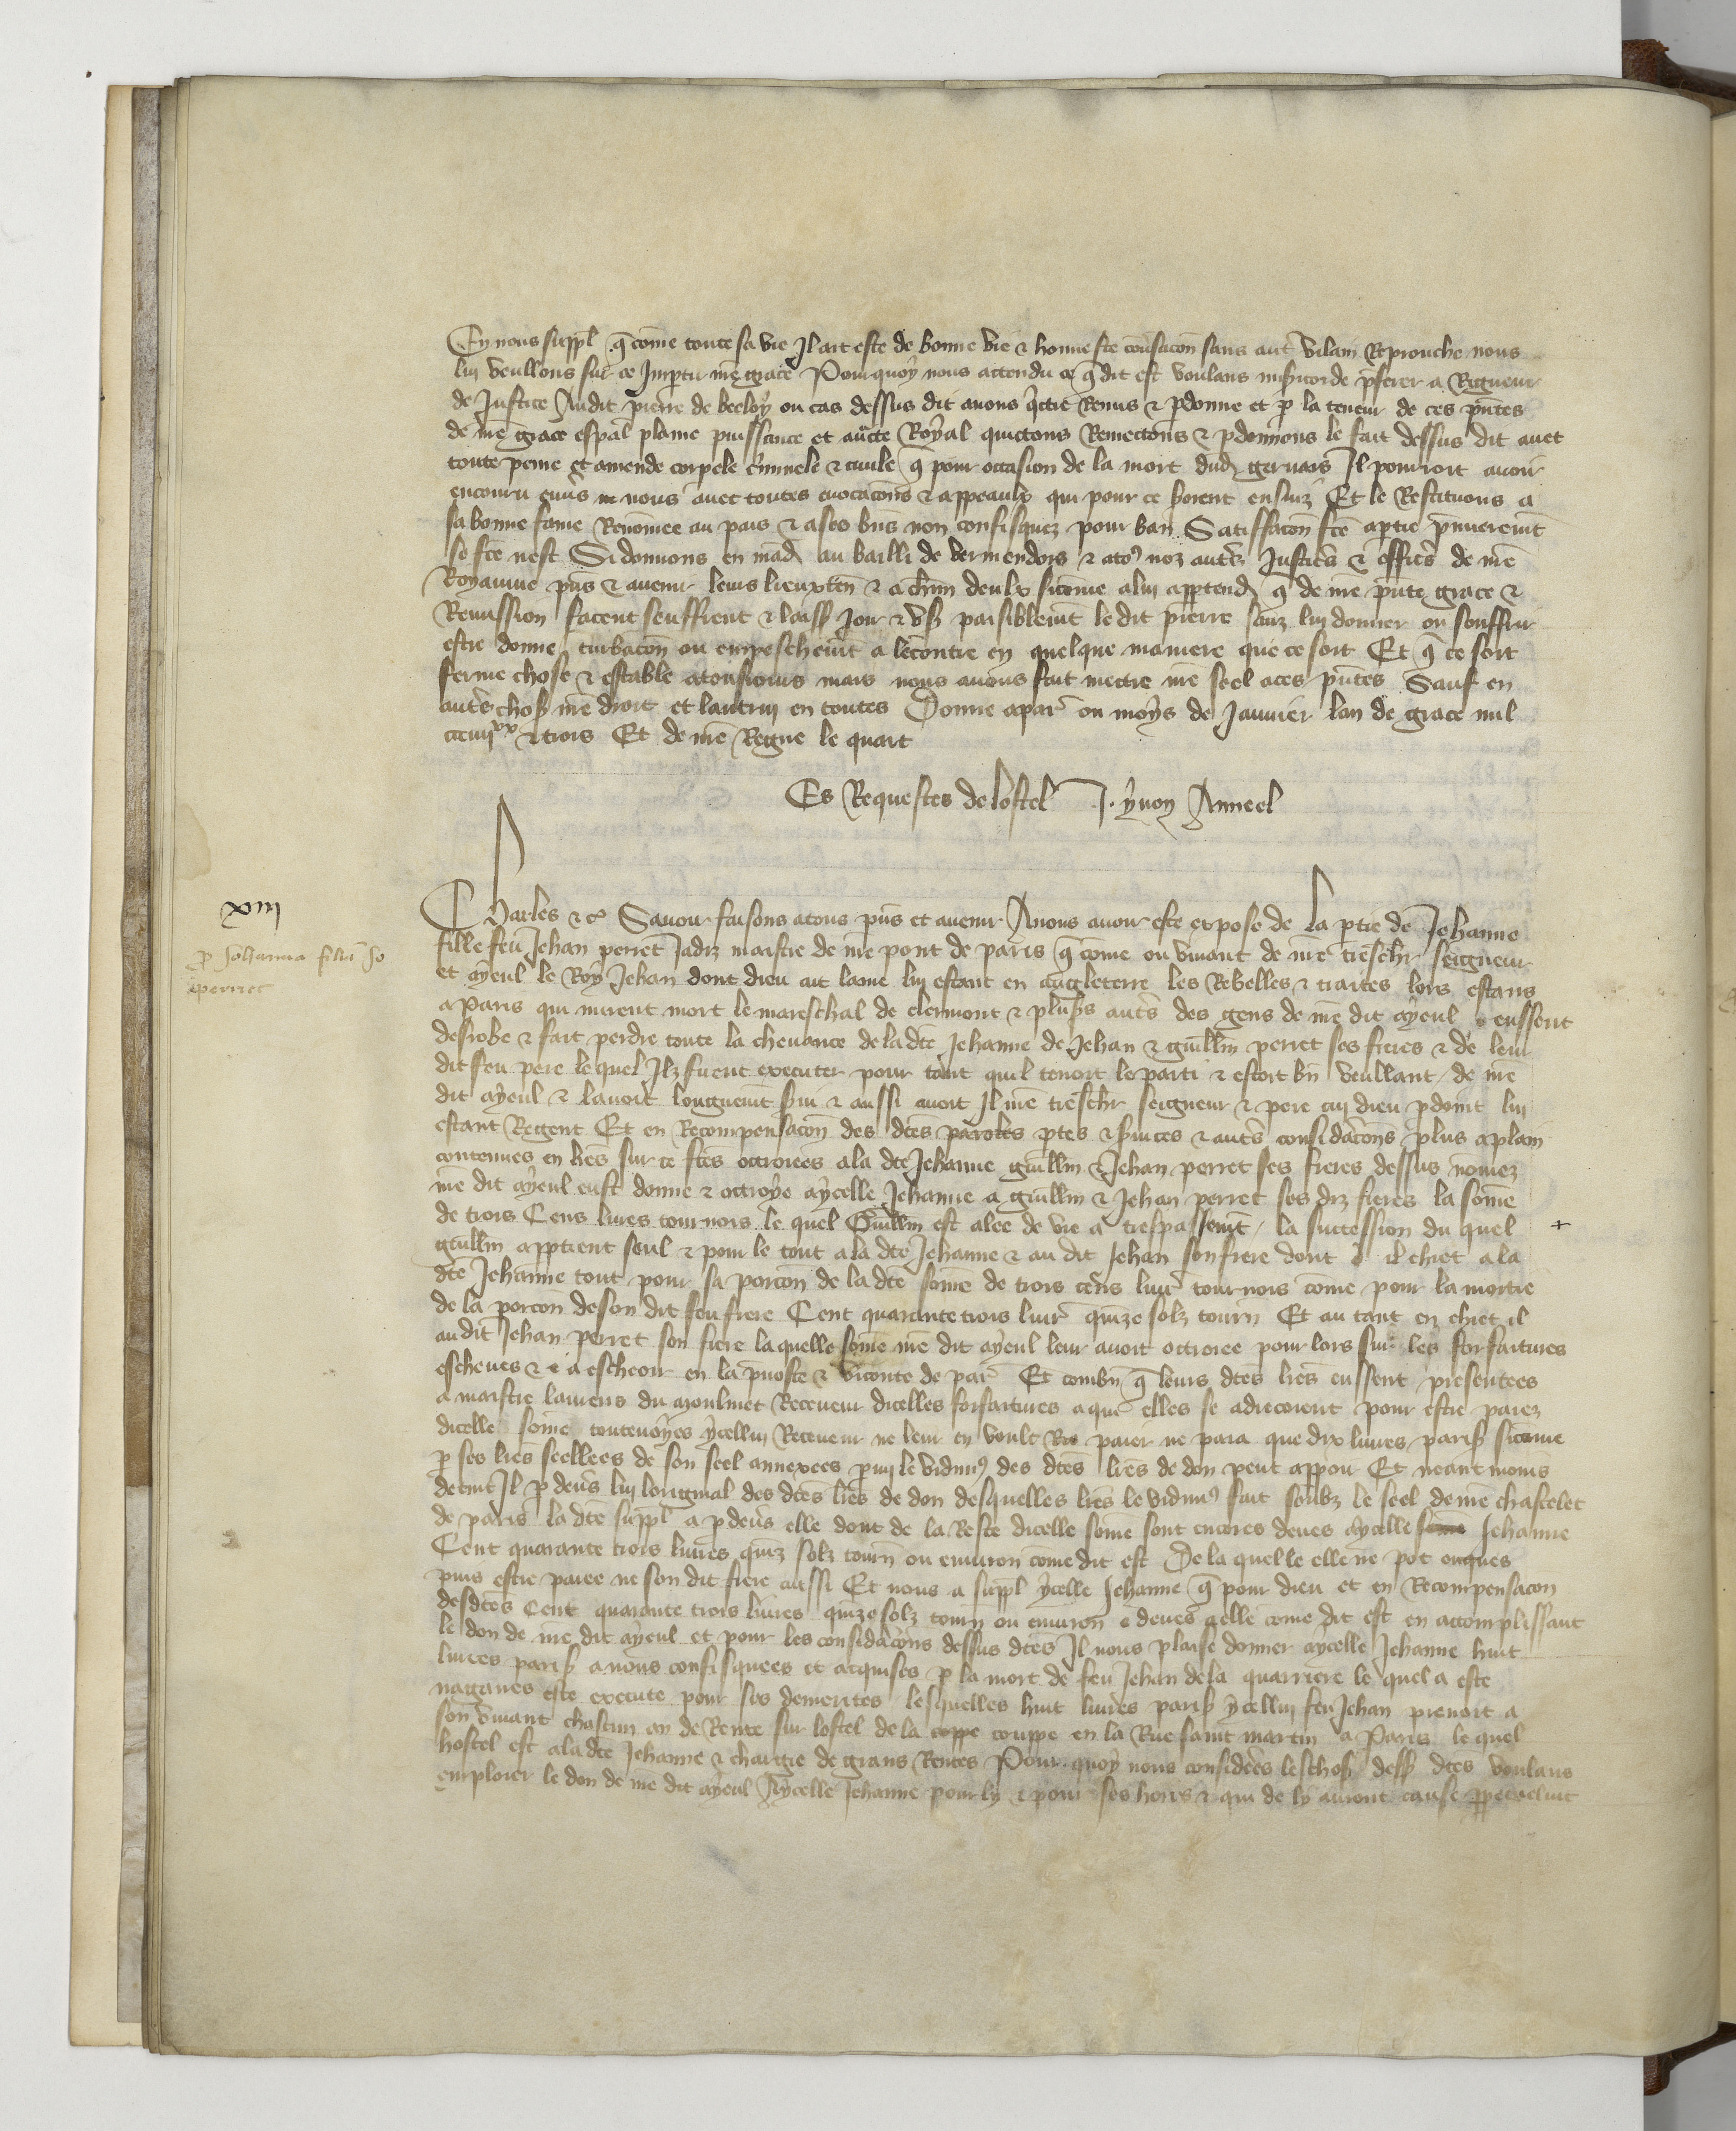 En nous suppl q̃ cõme toute sa vie Il ait este de bonne vie & honneste cõusacõn sans aut̃ vilain Reprouche nous
lui veullons sur ce Impartir nr̃e grace Pourquoy nous attendu ce q̃ dit est voulans mis̃icorde p̃ferer a Rigueur
de Justice Audit pierre de beeloy ou cas dessus dit auons q̃ctie Remis & pdonne et p la teneur de ces p̃ntes
de nr̃e grace esp̃al plaine puissance et auc̃te Royal quictons Remectons & pdonnons le fait dessus dit auec
toute peine et amende corpele c̃minele & ciuile q̃ pour occasion de la mort dud gernais Il pourroit auoir
encouru enũs nous auec toutes euocacõns & appeaulx qui pour ce s̃oient ensuiz Et le Restituons a
sa bonne fame Renõmee au pais & a ses bñs non confisquez pour ban Satiffacõn fc̃e a ptie p̃mieremt̃
se fc̃e nest Si donnons en mãd au bailli de vermendois & a toꝰ noz autr̃s Justicr̃s & officr̃s de nr̃e
Royaume p̃ns & auenir leurs lieuxteñ & a chũn deulx sicõme a lui apptend q̃ de nr̃e p̃nte grace &
Remission facent seuffrent & laiss Joir & vs̃ paisiblemt̃ le dit pierre sanz lui donner ou souffrir
estre donne turbacõn ou empeschemt̃ a lencontre en quelque maniere que ce soit Et q̃ ce soit
ferme chose & estable a tousiours mais nous auons fait mectre nr̃e seel a ces p̃ntes Sauf en
autr̃s chos̃ nr̃e droit et lautrui en toutes Donne a par̃ ou moys de Januier lan de grace mil
ccciiijˣˣ & trois Et de nr̃e Regne le quart
Es Requestes de lostel J. yuon Anneel
xiij
p Johanna filia Jo
perret
Charles &cᵃ Sauoir faisons a tous p̃ns et auenir A nous auoir este expose de La ptie de Jehanne
fille feu Jehan perret Jadiz maistre de nr̃e pont de paris q̃ cõme ou viuant de nr̃e tres̃chr̃ seigneur
et ayeul le Roy Jehan dont dieu ait lame lui estant en angleterre les Rebelles & traites lors estans
a Paris qui mirent mort le mareschal de clermont & plus̃s autr̃s des gens de nr̃e dit ayeul eussent
desrobe & fait perdre toute la cheuance de la dc̃e Jehanne de Jehan & guillm̃ perret ses freres & de leur
dit feu pere le quel Ilz firent executer pour tant quil tenoit le parti & estoit bñ veullant de nr̃e
dit ayeul & lauoit longuemt̃ s̃ui & aussi auoit Il nr̃e tres̃chr̃ seigneur & pere cui dieu pdoint lui
estant Regent Et en Recompensacõn des dc̃es paroles ptes & s̃uices & autr̃s considacõns plus a plain
contenues en lr̃es sur ce fc̃es octroiees a la dc̃e Jehanne guillm̃ & Jehan perret ses freres dessus nõmez
nr̃e dit ayeul eust donne & octroye a ycelle Jehanne a guillm̃ & Jehan perret ses diz freres la sõme
de trois Cens liures tournois le quel Guillm̃ est alee de vie a trespassemt̃ / la succession du quel +
guillm̃ apptient seul & pour le tout a la dc̃e Jehanne & au dit Jehan son frere dont il chiet a la
dc̃e Jehanne tout pour sa porcõn de la dc̃e sõme de trois cens liur̃ tournois cõme pour la moitie
de la porcõn de son dit feu frere Cent quarante trois liur̃ quinze solz tourñ Et au tant en chiet il
au dit Jehan perret son frere la quelle sõme nr̃e dit ayeul leur auoit octroiee pour lors sur les forfaitures
escheues & a escheoir en la p̃uoste & viconte de par̃ Et combñ q̃ leurs dc̃es lr̃es eussent presentees
a maistre laurens du moulinet Receueur dicelles forfaitures a qui elles se adrecoient pour estre paiez
dicelle sõme touteuoyes ycellui Receueur ne leur en voult paier ne paia que dix liures paris̃ sicõme
p ses lr̃es seellees de son seel annexees pmi le vidimꝰ des dc̃es lr̃es de don peut apparoir Et neantmoins
detint Il p deũs lui loriginal des dc̃es lr̃es de don desquelles lr̃es le vidimꝰ fait soubz le seel de nr̃e chastelet
de paris la dc̃e suppl a p deũs elle dont de la Reste dicelle sõme sont encores deues a ycelle Jehanne
Cent quarante trois liures quinz solz tourñ ou enuiron cõme dit est De la quelle elle ne pot onques
puis estre paiee ne son dit frere aussi Et nous a suppl ycelle Jehanne q̃ pour dieu et en Recompensacõn
desdc̃es Cent quarante trois liures quinze solz tourñ ou enuiron deues a elle cõme dit est en accomplissant
le don de nr̃e dit ayeul et pour les considacõns dessus dc̃es Il nous plaise donner a ycelle Jehanne huit
liures paris̃ a nous confisquees et acquises p la mort de feu Jehan de la quarriere le quel a este
nagaires este execute pour ses demerites lesquelles huit liures paris̃ ycellui feu Jehan prenoit a
son viuant chascun an de Rente sur lostel de la coppe couppe en la Rue saint martin a Paris le quel
hostel est a la dc̃e Jehanne & chargie de grans Rentes Pour quoy nous considerees les chos̃ dess̃ dc̃es voulans
emploier le don de nr̃e dit ayeul A ycelle Jehanne pour ly & pour ses hoirs & qui de ly auront cause ppetuelmt̃